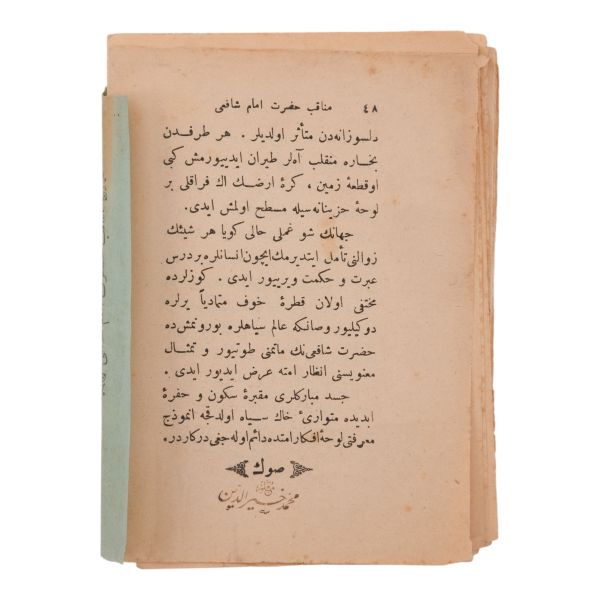 ٤٨ مناقب حضرت امام شافعی
دلسوزانه‌دن متأثر اولدیلر . هر طرفدن
بخاره منقلب آه‌لر طیران ایدییورمش کبی
اوقطعۀ زمین ، کرۀ ارضك اك فراقلی بر
لوحۀ حزینانه‌سیله مسطح اولمش ایدی .
جهانك شو غملی حالی کویا هر شیئك
زوالنی تأمل ایتدیرمك ایچون انسانلره بر درس
عبرت و حکمت ویرییور ایدی . کوزلرده
مختفی اولان قطرۀ خوف متمادیاً یرلره
دوکیلیور وصانکه عالم سیاهلره بورونمش‌ده
حضرت شافعی‌نك ماتمنی طوتیور و تمثال
معنویسنی انظار امته عرض ایدیور ایدی .
جسد مبارکلری مقبرۀ سکون و حفرۀ
ابدیده متواریٔ خاك سیاه اولدقجه انموذج
معرفتی لوحۀ افکار امتده دائم اوله‌جغی درکاردر .
صوك
محمد خیر الدین